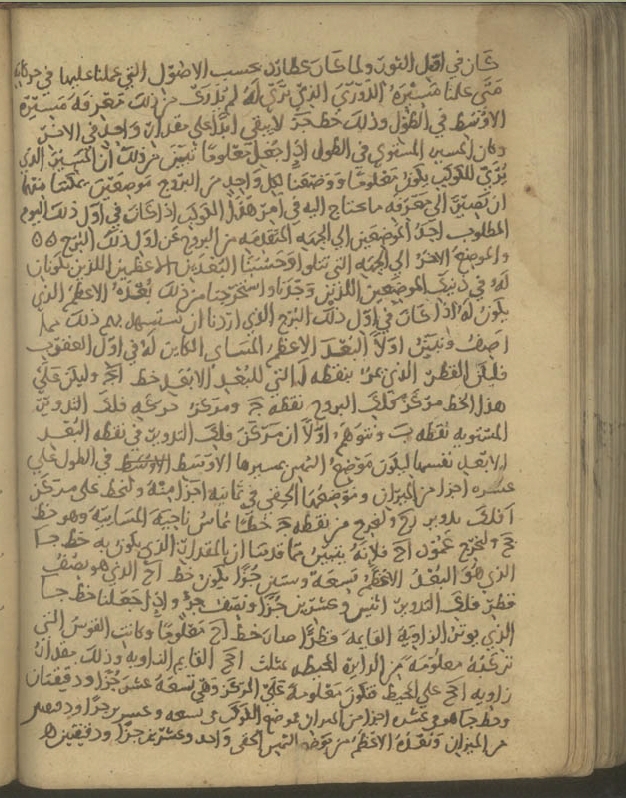 كان في اول الثور ولما كان عطارد بحسب الاصول التي عملنا عليها في حركاته
متى علمنا مسيره الدوري الذي يرى له لم يدرك من ذلك معرفة مسيره
الاوسط في الطول وذلك خط جـ لا يبقى ابدا على مقدار واحد في الاخر
وكان المسير المستوي في الطول اذا جعل معلوما تبين من ذلك ان المسير الذي
يرى للكوكب يكون معلوما ووضعنا لكل واحد من البروج موضعين يمكننا منهما
ان نصير الى معرفة ما يحتاج اليه في امر هذا الكوكب اذا كان في اول ذلك اليوم
المطلوب احد الموضعين الى الجهة المتقدمة من البروج عن اول ذلك البرج
والموضع الاخر الى الجهة التي تتلوا وحسبنا البعدين الاعظمين اللذين يكونان
له في ذينك الموضعين اللذين وجدنا واستخرجنا من ذلك بعده الاعظم الذي
يكون له اذا كان في اول ذلك البرج الذي اردنا ان نستسهل بهم ذلك مما
اصف ونبين اولا البعد الاعظم المسائي الكاين له في اول العقرب
فليكن القطر الذي يمر بنقطة ا التي للبعد الابعد خط اجـ وليكن على
هذا الخط مركز فلك البروج نقطة جـ ومركز حركة فلك التدوير
المستوية نقطة ب ونتوهم اولا ان مركز فلك التدوير في نقطة البعد
الابعد نفسها ليكون موضع الشمس بمسيرها الاوسط في الطول على
عشرة اجزا من الميزان وموضعها الخفي في ثمانية اجزا منه ونخط على مركز
ا فلك تدوير رح ونخرج من نقطة جـ خطا يماس ناحية المسائية وهو خط
جح ونخرج عمود اح فلانه يتبين مما قدمنا ان بالمقدار الذي يكون به خط جا
الذي هو البعد الاعظم تسعة وستين جزا يكون خط اح الذي هو نصف
قطر فلك التدوير اثنين وعشرين جزا ونصف جز واذا جعلنا خط جا
الذي يوتر الزاوية القايمة قطرا صار خط اح معلوما وكانت القوس التي
توتره معلومة من الدايرة المحيطة بمثلث احجـ القايم الزاوية وذلك مقدار
زاوية اجح على المحيط فتكون معلومة على المركز وهي تسعة عشر جزا ودقيقتان
وخط جا هو في عشرة اجزا من الميران فموضع الكوكب في تسعة وعشرين جزا ودقيقتين
من الميزان وبعده الاعظم من موضع الشمس الخفي واحد وعشرين جزا ودقيقتين